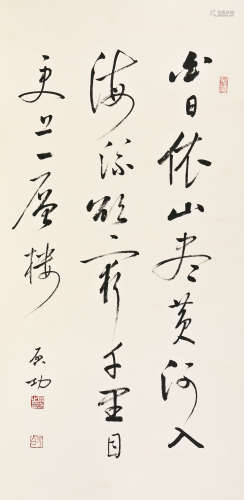 白日依山盡黄河入
海流欲窮千里目
更上一層樓
启功